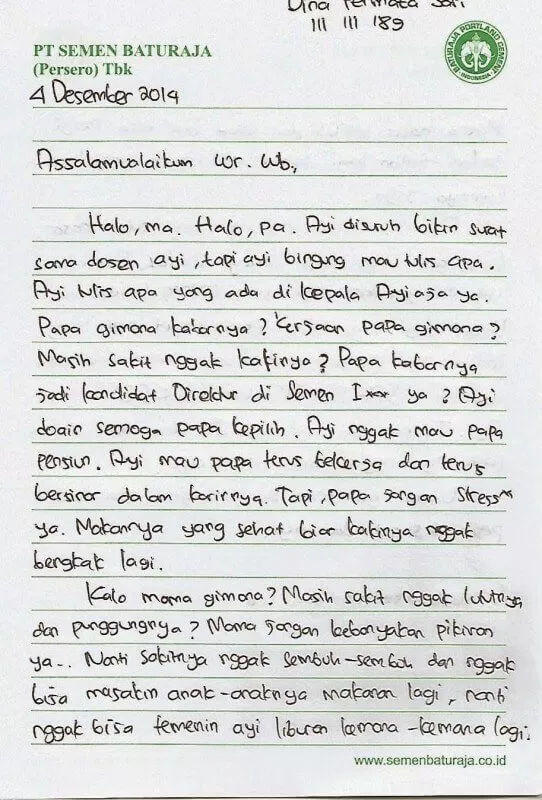 Dina Permata Sari
111 111 189
PT SEMEN BATURAJA
(Persero) Tbk
BATURAJA PORTLAND CEMENT
INDONESIA
4 Desember 2014
Assalamualaikum Wr. Wb.,
Halo, ma. Halo, pa. Ayi disuruh bikin surat
sama dosen ayi, tapi ayi bingung mau tulis apa.
Ayi tulis apa yang ada di kepala Ayi aja ya.
Papa gimana kabarnya? Kerjaan papa gimana?
Masih sakit nggak kakinya? Papa kabarnya
jadi kandidat Direktur di Semen I*** ya? Ayi
doain semoga papa kepilih. Ayi nggak mau papa
pensiun. Ayi mau papa terus bekerja dan terus
bersinar dalam karirnya. Tapi, papa jangan stress^
ya. Makannya yang sehat biar kakinya nggak
bengkak lagi.
Kalo mama gimana? Masih sakit nggak lututnya
dan punggungnya? Mama jangan kebanyakan pikiran
ya.. Nanti sakitnya nggak sembuh-sembuh dan nggak
bisa masakin anak-anaknya makanan lagi, nanti
nggak bisa temenin ayi liburan kemana-kemana lagi.
www.semenbaturaja.co.id